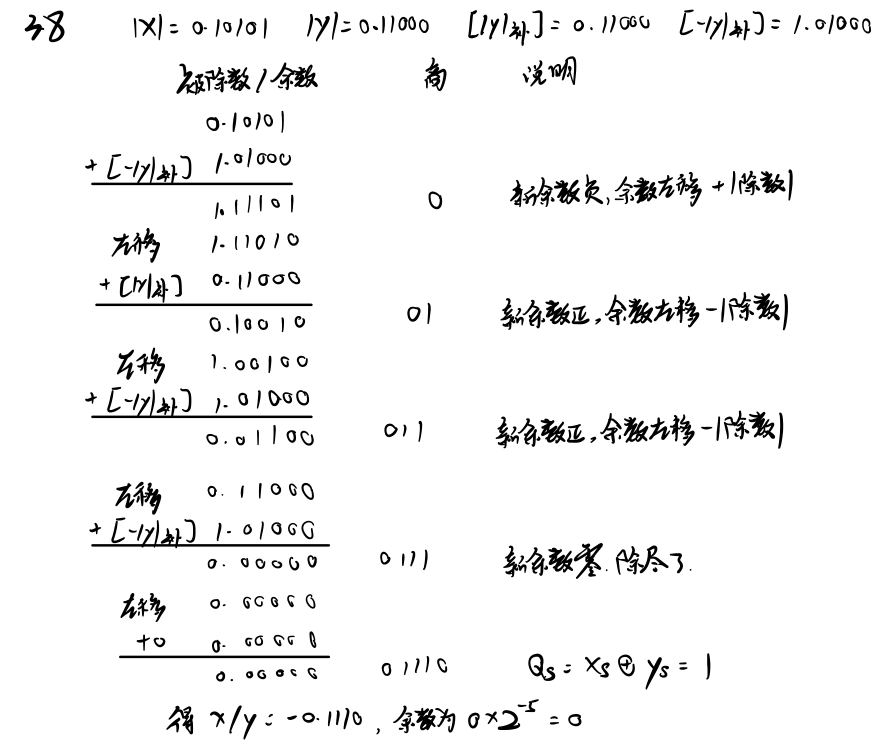 38 |X| = 0.10101 |Y| = 0.11000 [|Y|补] = 0.11000 [-|Y|补] = 1.01000
被除数/余数 商 说明
0.10101
+ [-|Y|补] 1.01000
1.11101 0 新余数负,余数左移 + |除数|
左移 1.11010
+ [|Y|补] 0.11000
0.10010 01 新余数正,余数左移 - |除数|
左移 1.00100
+ [-|Y|补] 1.01000
0.01100 011 新余数正,余数左移 - |除数|
左移 0.11000
+ [-|Y|补] 1.01000
0.00000 0111 新余数零.除尽了.
左移 0.00000
+0 0.00000
0.00000 01110 Qs = Xs ⊕ Ys = 1
得 X/Y = -0.1110, 余数为 0×2^-5 = 0